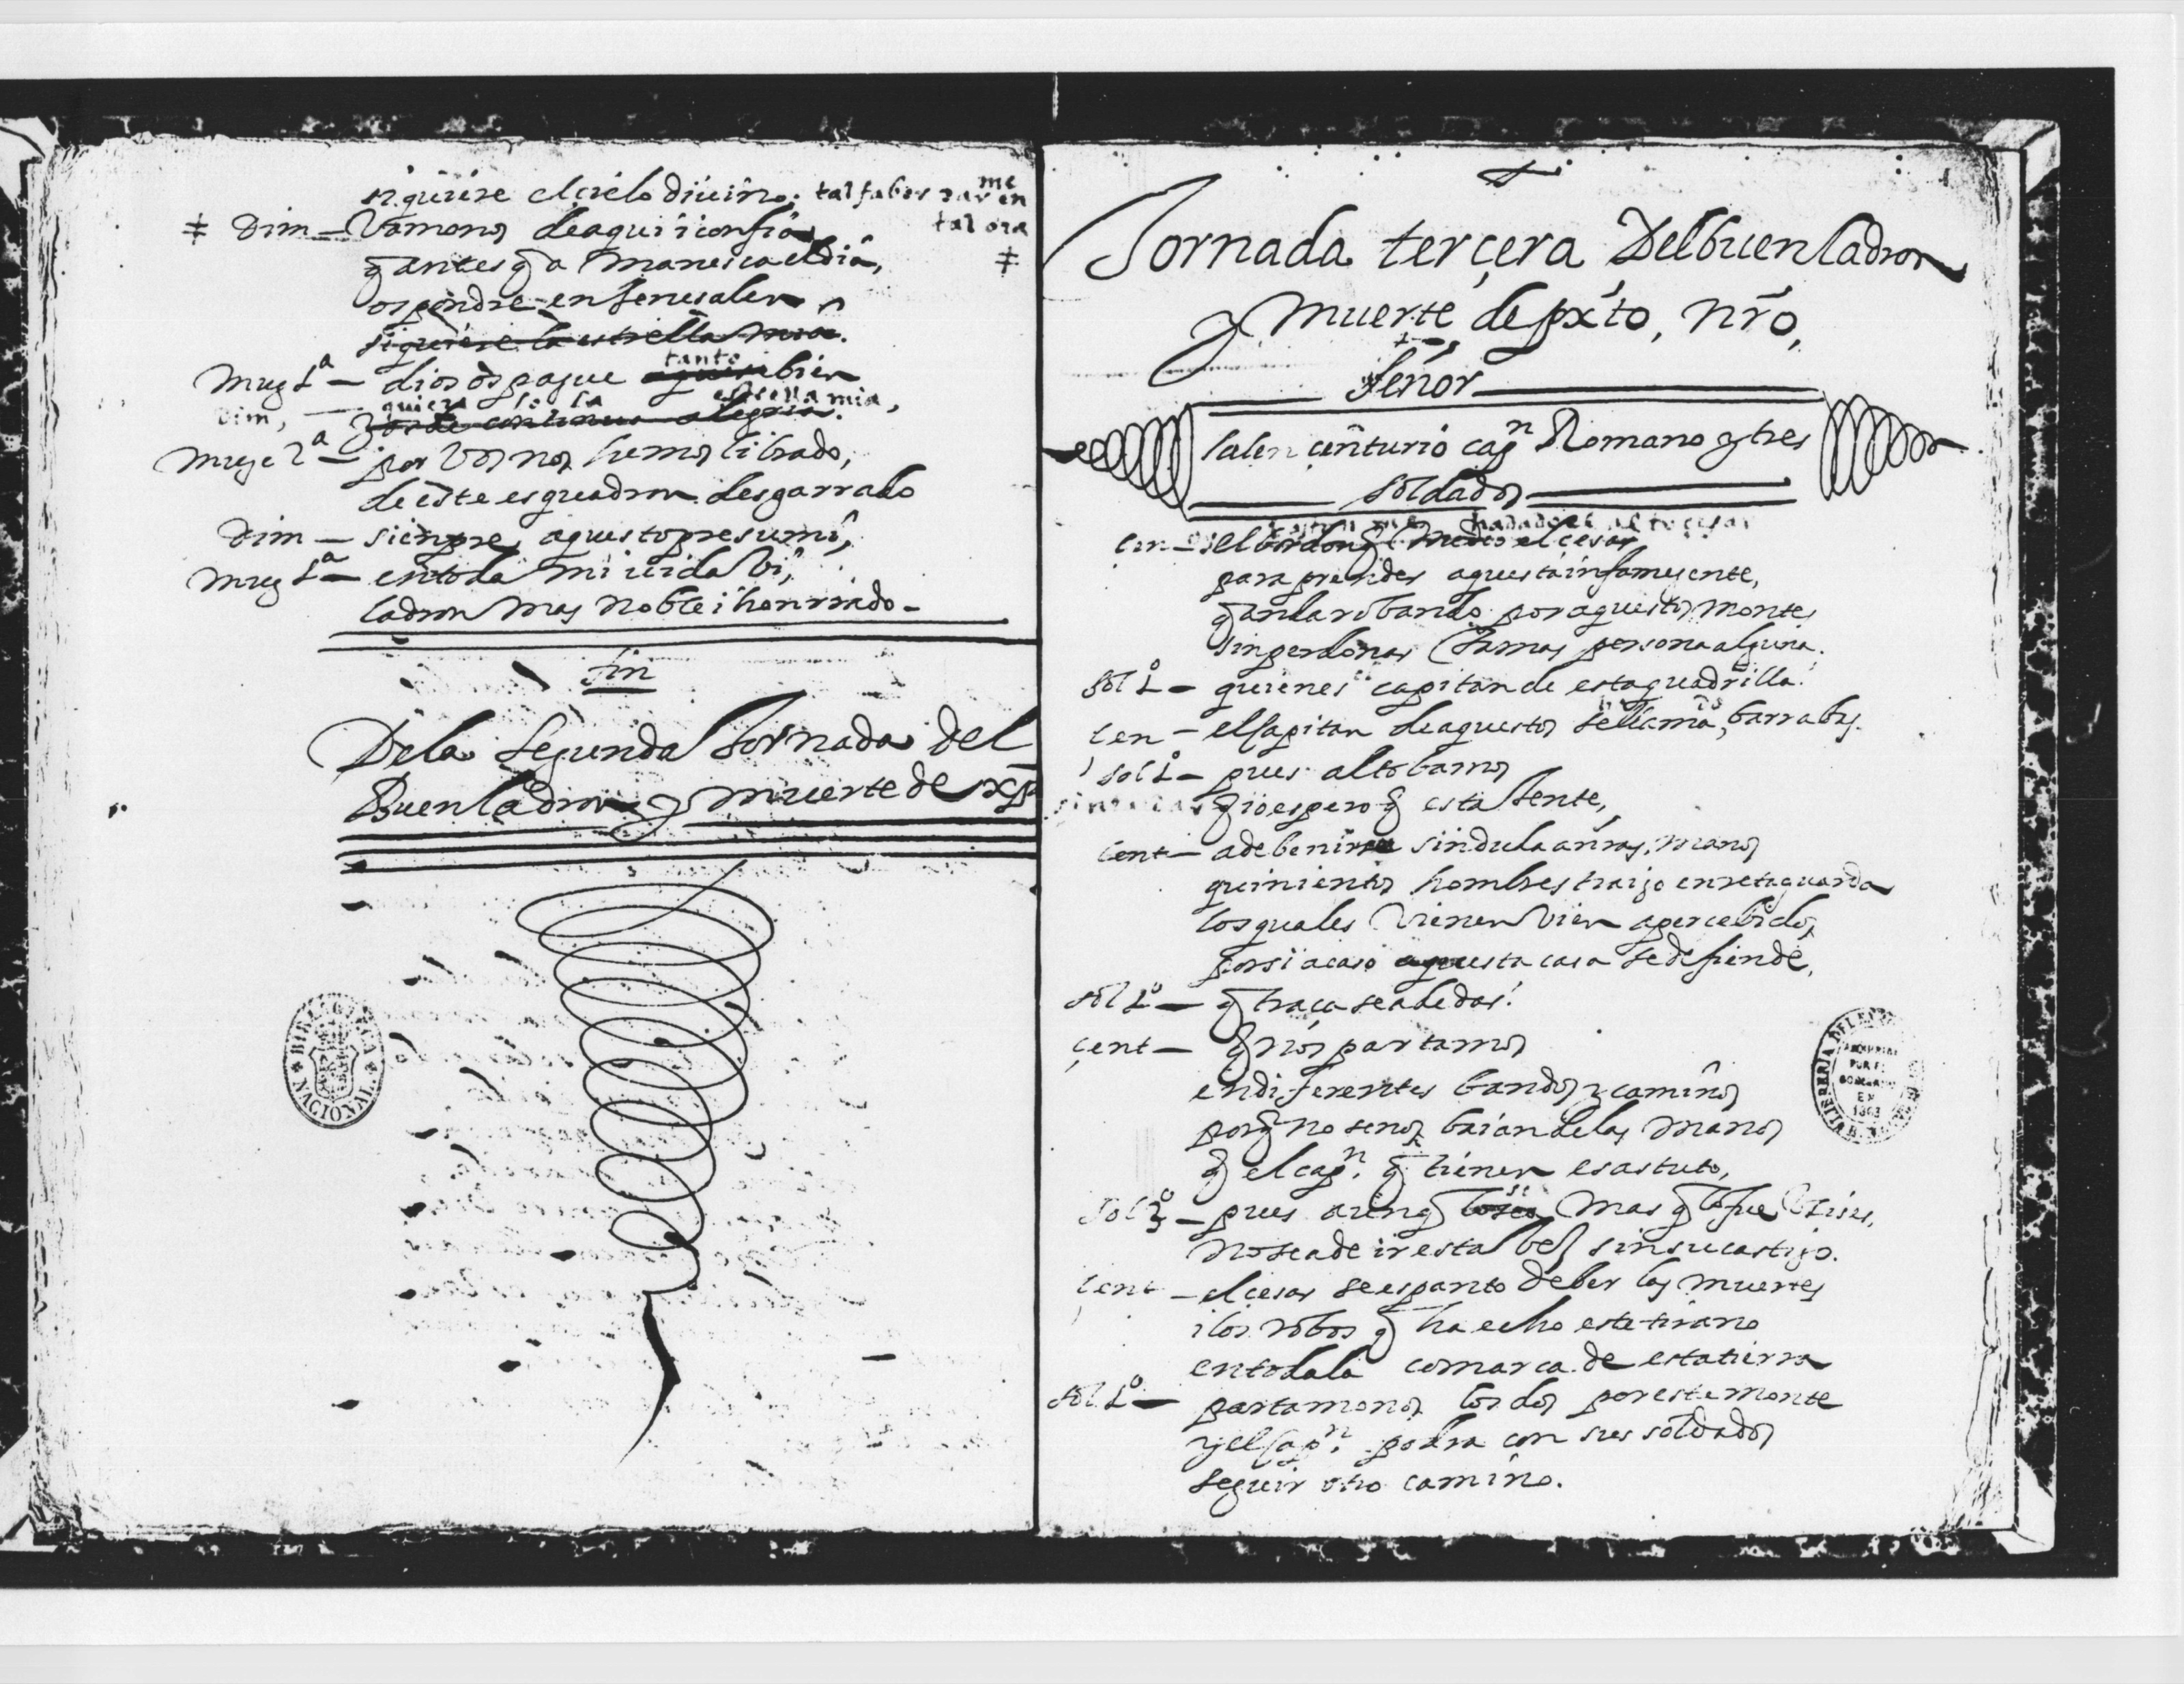 si quiere el cielo diuino. tal fabor me
tal ora
Dim – Vamonos de aqui i confia
q̃ antes q̃ a manesca el dia,
os pondre en Jerusalen
si quiere la estrella mia.
Mug 1ª – dios os pague tanto bien
Dim, – quiera lo la estrella mia,
y os de continua alegria.
Muge 2ª – por Vos nos hemos librado,
de este esquadron desgarrado
Dim – sienpre aquesto presumi,
Mug 1ª – en toda mi uida Vi,
ladron mas noble i honrrado –
fin
De la Segunda Jornada del
Buen ladron y muerte de xp̃
BIBLIOTECA NACIONAL
Jornada terçera Del buen ladron
y muerte, de pxt̃o, nr̃o,
señor
salen çenturio capn Romano y tres
soldados
Cen – el q̃ me dio el cesar
para prender aquesta infame gente,
q̃ anda robando por aquestos montes
sin perdonar Jamas persona alguna.
Sol 1º – quien es capitan de esta quadrilla?
Cen – el capitan de aquestos se llama, barrabas.
Sol 1º – pues alto bamos
q̃ io espero q̃ esta Jente,
Cent – a de benir sin duda a nras, manos
quinientos hombres traigo en retaguarda
los quales Vienen Vien apercebidos,
por si acaso aquesta casa se defiende,
sol 1º – q̃ traça se a de dar?
çent – q̃ nos partamos
en diferentes bandos i caminos
porq̃ no se nos baian de las manos
q̃ el capn. q̃ tienen es astuto,
Sol 3º – pues aunq̃ mas q̃ lo fue
no se a de ir esta bes sin su castigo.
Cent – el cesar se espanto de ber las muertes
i los robos q̃ ha echo este tirano
en toda la comarca de esta tierra
sol 1º – partamonos los dos por este monte
y el capn. podra con sus soldados
seguir otro camino.